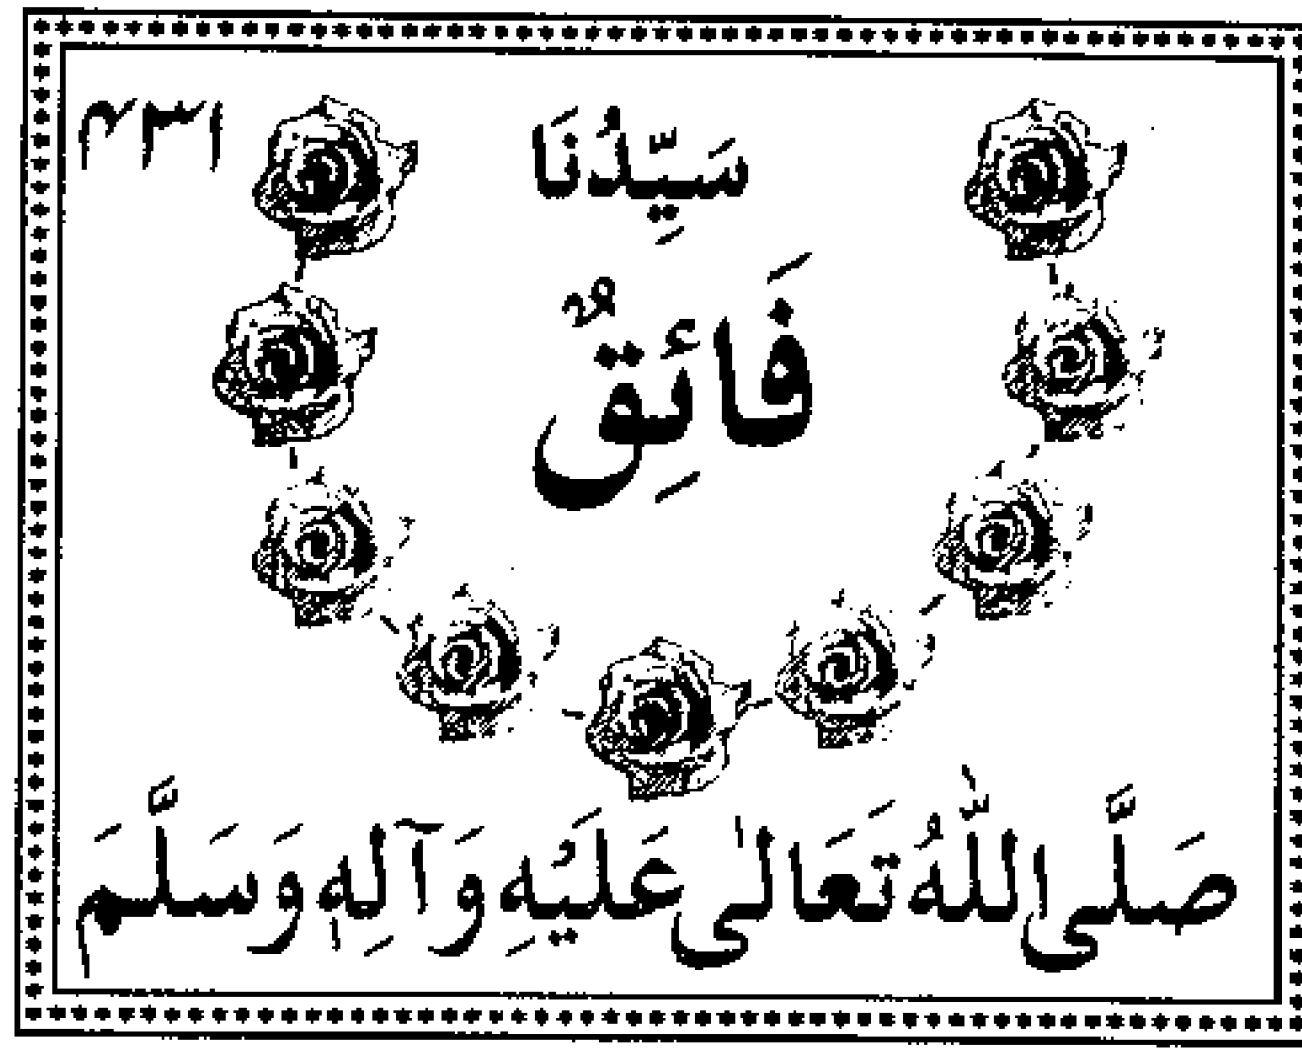 ٢٣١
سَيِّدُنَا
فَائِقٌ
صَلَّى اللّٰهُ تَعَالٰى عَلَيْهِ وَآلِهٖ وَسَلَّمَ